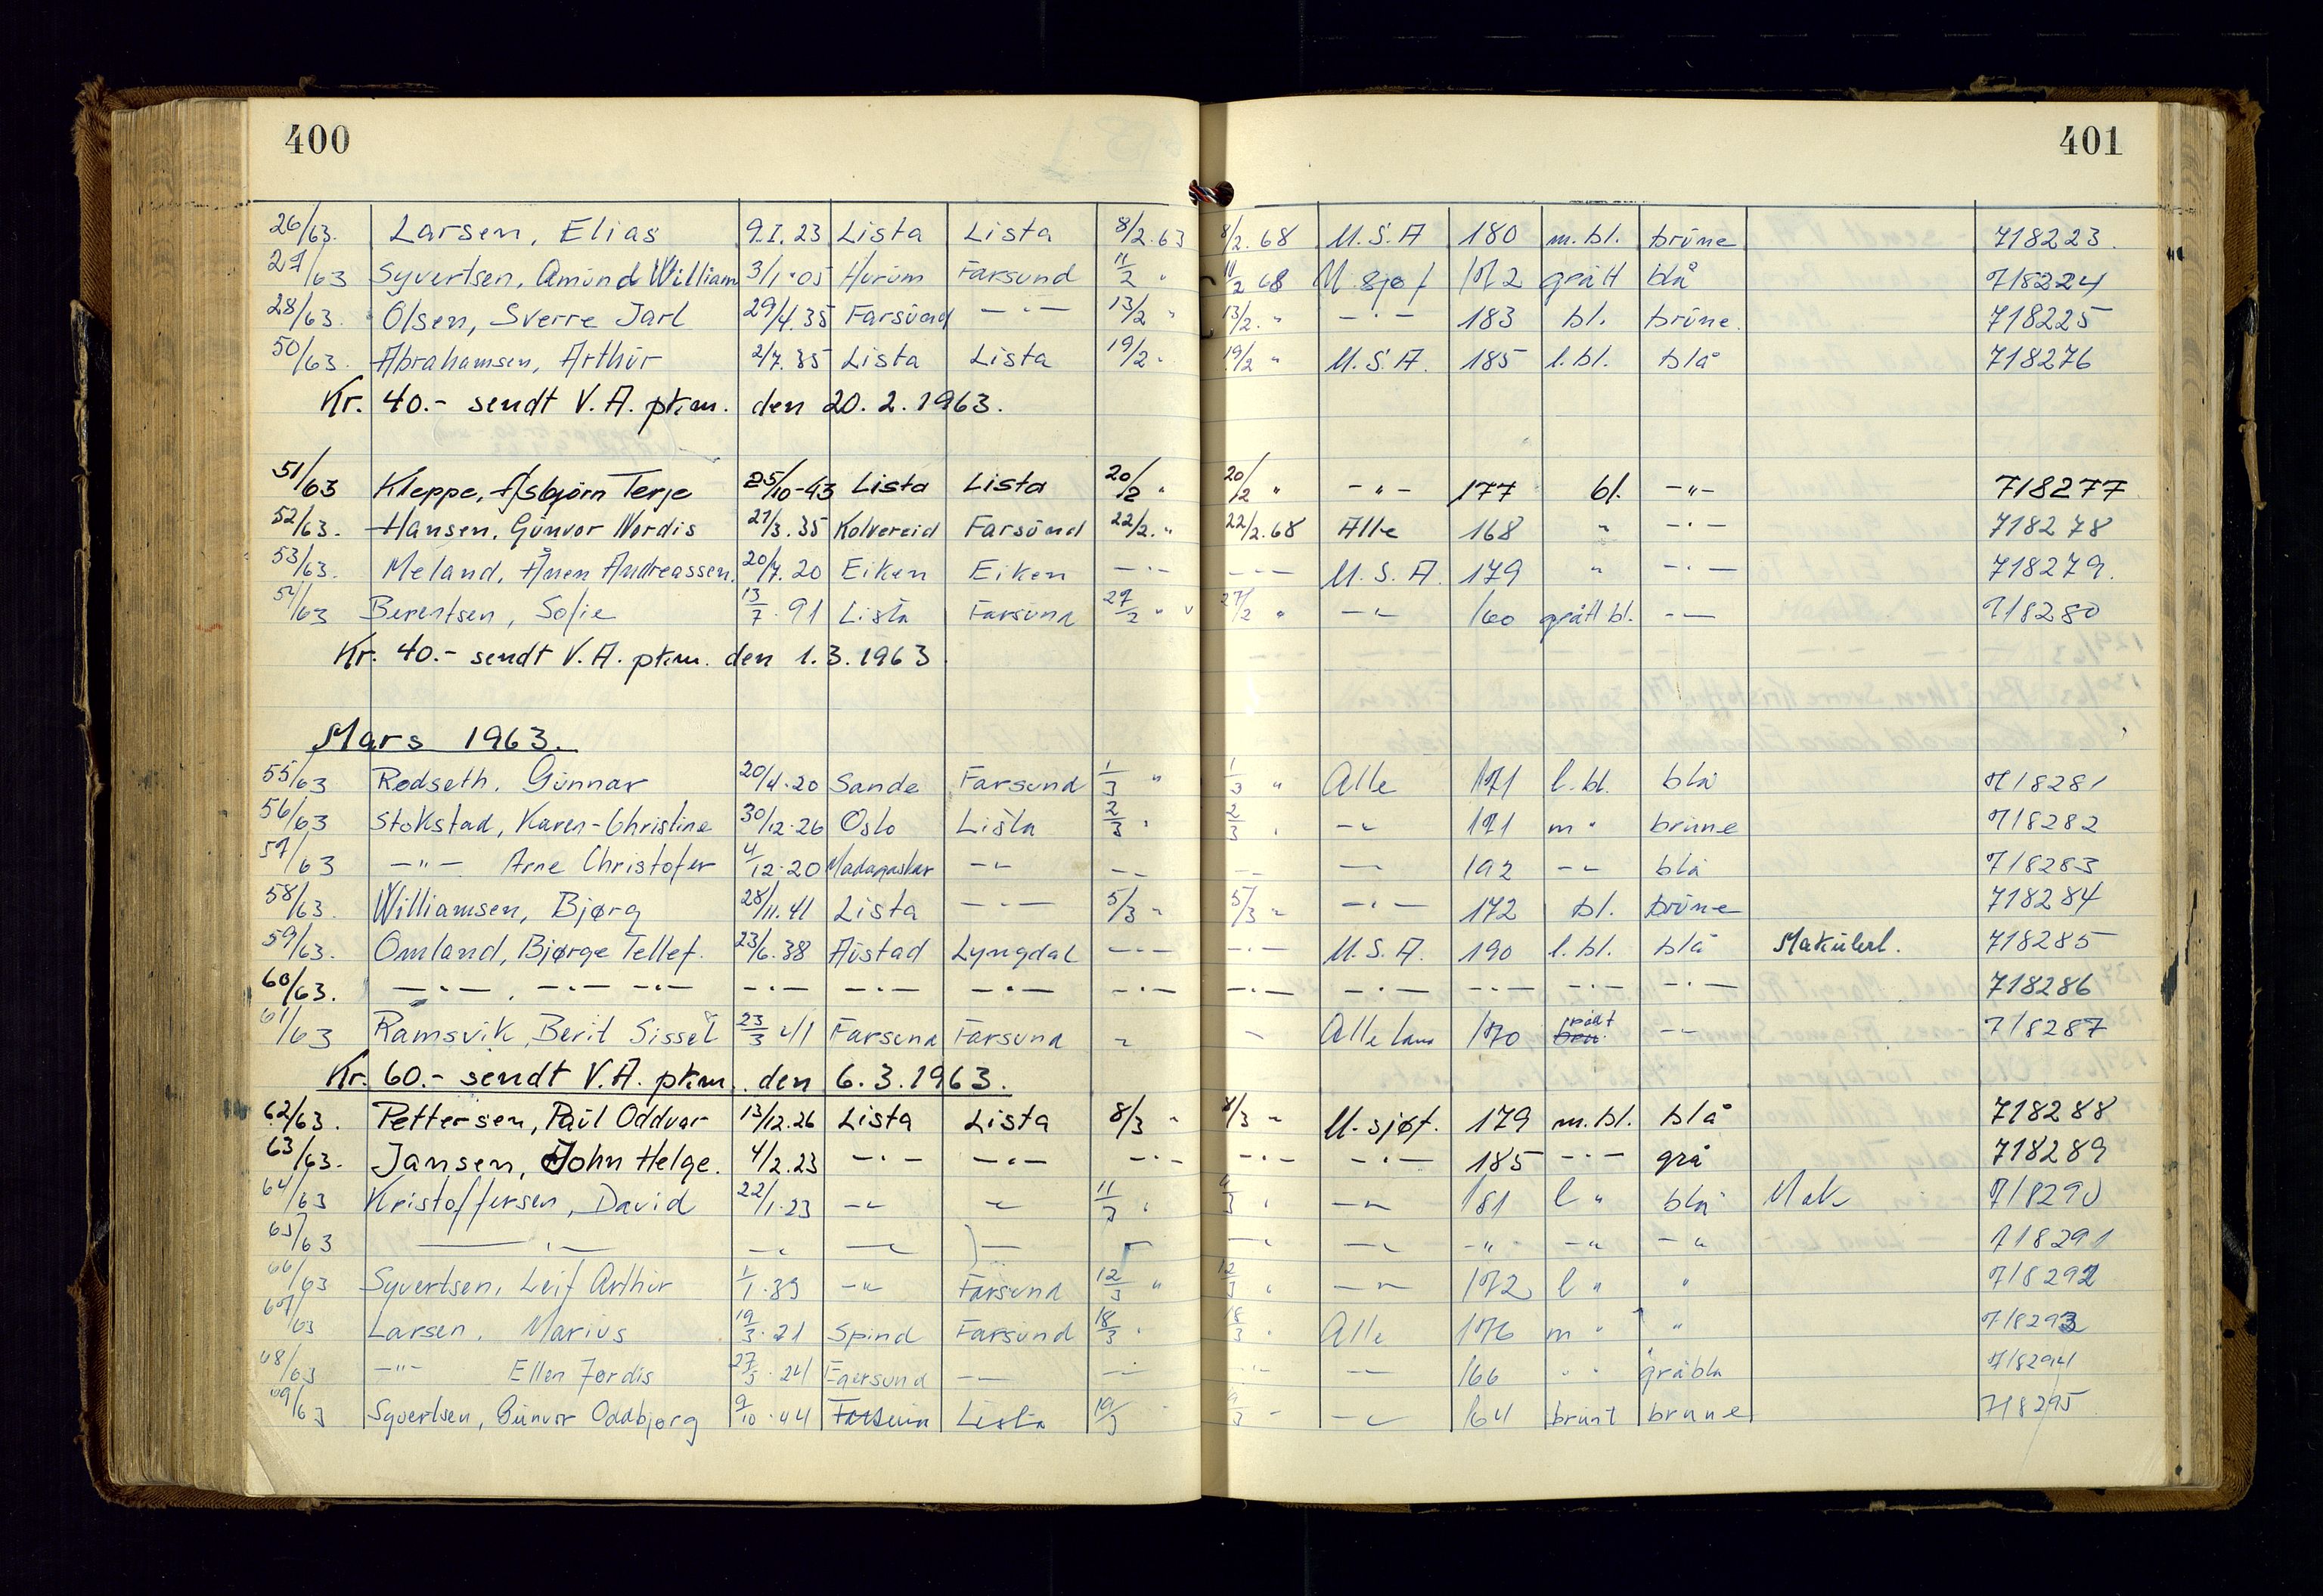 400
401
26/63. Larsen, Elias 9.I.23 Lista Lista 8/2.63 8/2.68 U.S.A 180 m.bl. brune 718223.
27/63 Syvertsen, Amund William 3/1.05 Hurum Farsund 11/2 " 11/2 68 U.sjøf 172 grått blå 718224
28/63. Olsen, Sverre Jarl 29/4.35 Farsund —"— 13/2 " 13/2. " —"— 183 bl. brune. 718225
50/63. Abrahamsen, Arthur 2/7.35 Lista Lista 19/2 " 19/2 " U.S.A. 185 l.bl. blå 718276
Kr. 40.- sendt V.A. ptkm. den 20.2.1963.
51/63 Kleppe, Asbjørn Terje 25/10-43 Lista Lista 20/2 " 20/2 " —"— 177 bl. —"— 718277
52/63. Hansen, Gunvor Nordis 21/3.35 Kolvereid Farsund 22/2. " 22/2.68 Alle 168 " —"— 718278
53/63. Meland, Ånen Andreassen. 20/7.20 Eiken Eiken —"— —"— U.S.A. 179 " —"— 718279.
54/63 Berentsen, Sofie 13/7.91 Lista Farsund 27/2 " 27/2 " —"— 160 grått bl. —"— 718280
Kr. 40.- sendt V.A. ptkm. den 1.3.1963
Mars 1963.
55/63 Rødseth, Gunnar 20/4.20 Sande Farsund 1/3 " 1/3 " Alle 171 l.bl. blå 718281
56/63 Stokstad, Karen-Christine 30/12.26 Oslo Lista 2/3 " 2/3 " —"— 171 m " brune 718282
57/63 —"— Arne Christofer 4/12.20 Madagaskar —"— —"— —"— —"— 192 —"— blå 718283
58/63. Williamsen, Bjørg 28/11.41 Lista —"— 5/3 " 5/3 " —"— 172 bl. brune 718284
59/63. Omland, Bjørge Tellef. 23/6.38 Austad Lyngdal —"— —"— U.S.A. 190 l.bl. blå Makulert. 718285
60/63. —"—, —"— —"— —"— —"— —"— —"— —"— —"— —"— —"— —"— 718286
61/63 Ramsvik, Berit Sissel 23/3 41 Farsund Farsund " " Alle land 170 —"— 718287
Kr. 60.- sendt V.A. ptkm. den 6.3.1963.
62/63. Pettersen, Paul Oddvar 13/12.26 Lista Lista 8/3 " 8/3 " U-sjøf. 179 m.bl. blå 718288
63/63. Jansen, John Helge. 4/2.23 —"— —"— —"— —"— —"— 185 —"— grå 718289
64/63 Kristoffersen, David 22/1.23 —"— " 11/3 " 11/3 " —"— 181 l " blå Mak 718290
65/63 —"— —"— —"— —"— —"— —"— —"— —"— —"— 718291
66/63 Syvertsen, Leif Arthur 1/1.39 —"— Farsund 12/3 " 12/3 " —"— 172 l " " 718292
67/63 Larsen, Marius 19/3.21 Spind Farsund 18/3 " 18/3 " Alle 176 m " " 718293
68/63 —"— Ellen Jordis 27/3.24 Egersund —"— —"— —"— —"— 166 " " gråblå 718294
69/63 Syvertsen, Gunvor Oddbjørg 9/10.44 Farsund Lista 19/3 " 19/3 " —"— 164 brunt brune 718295